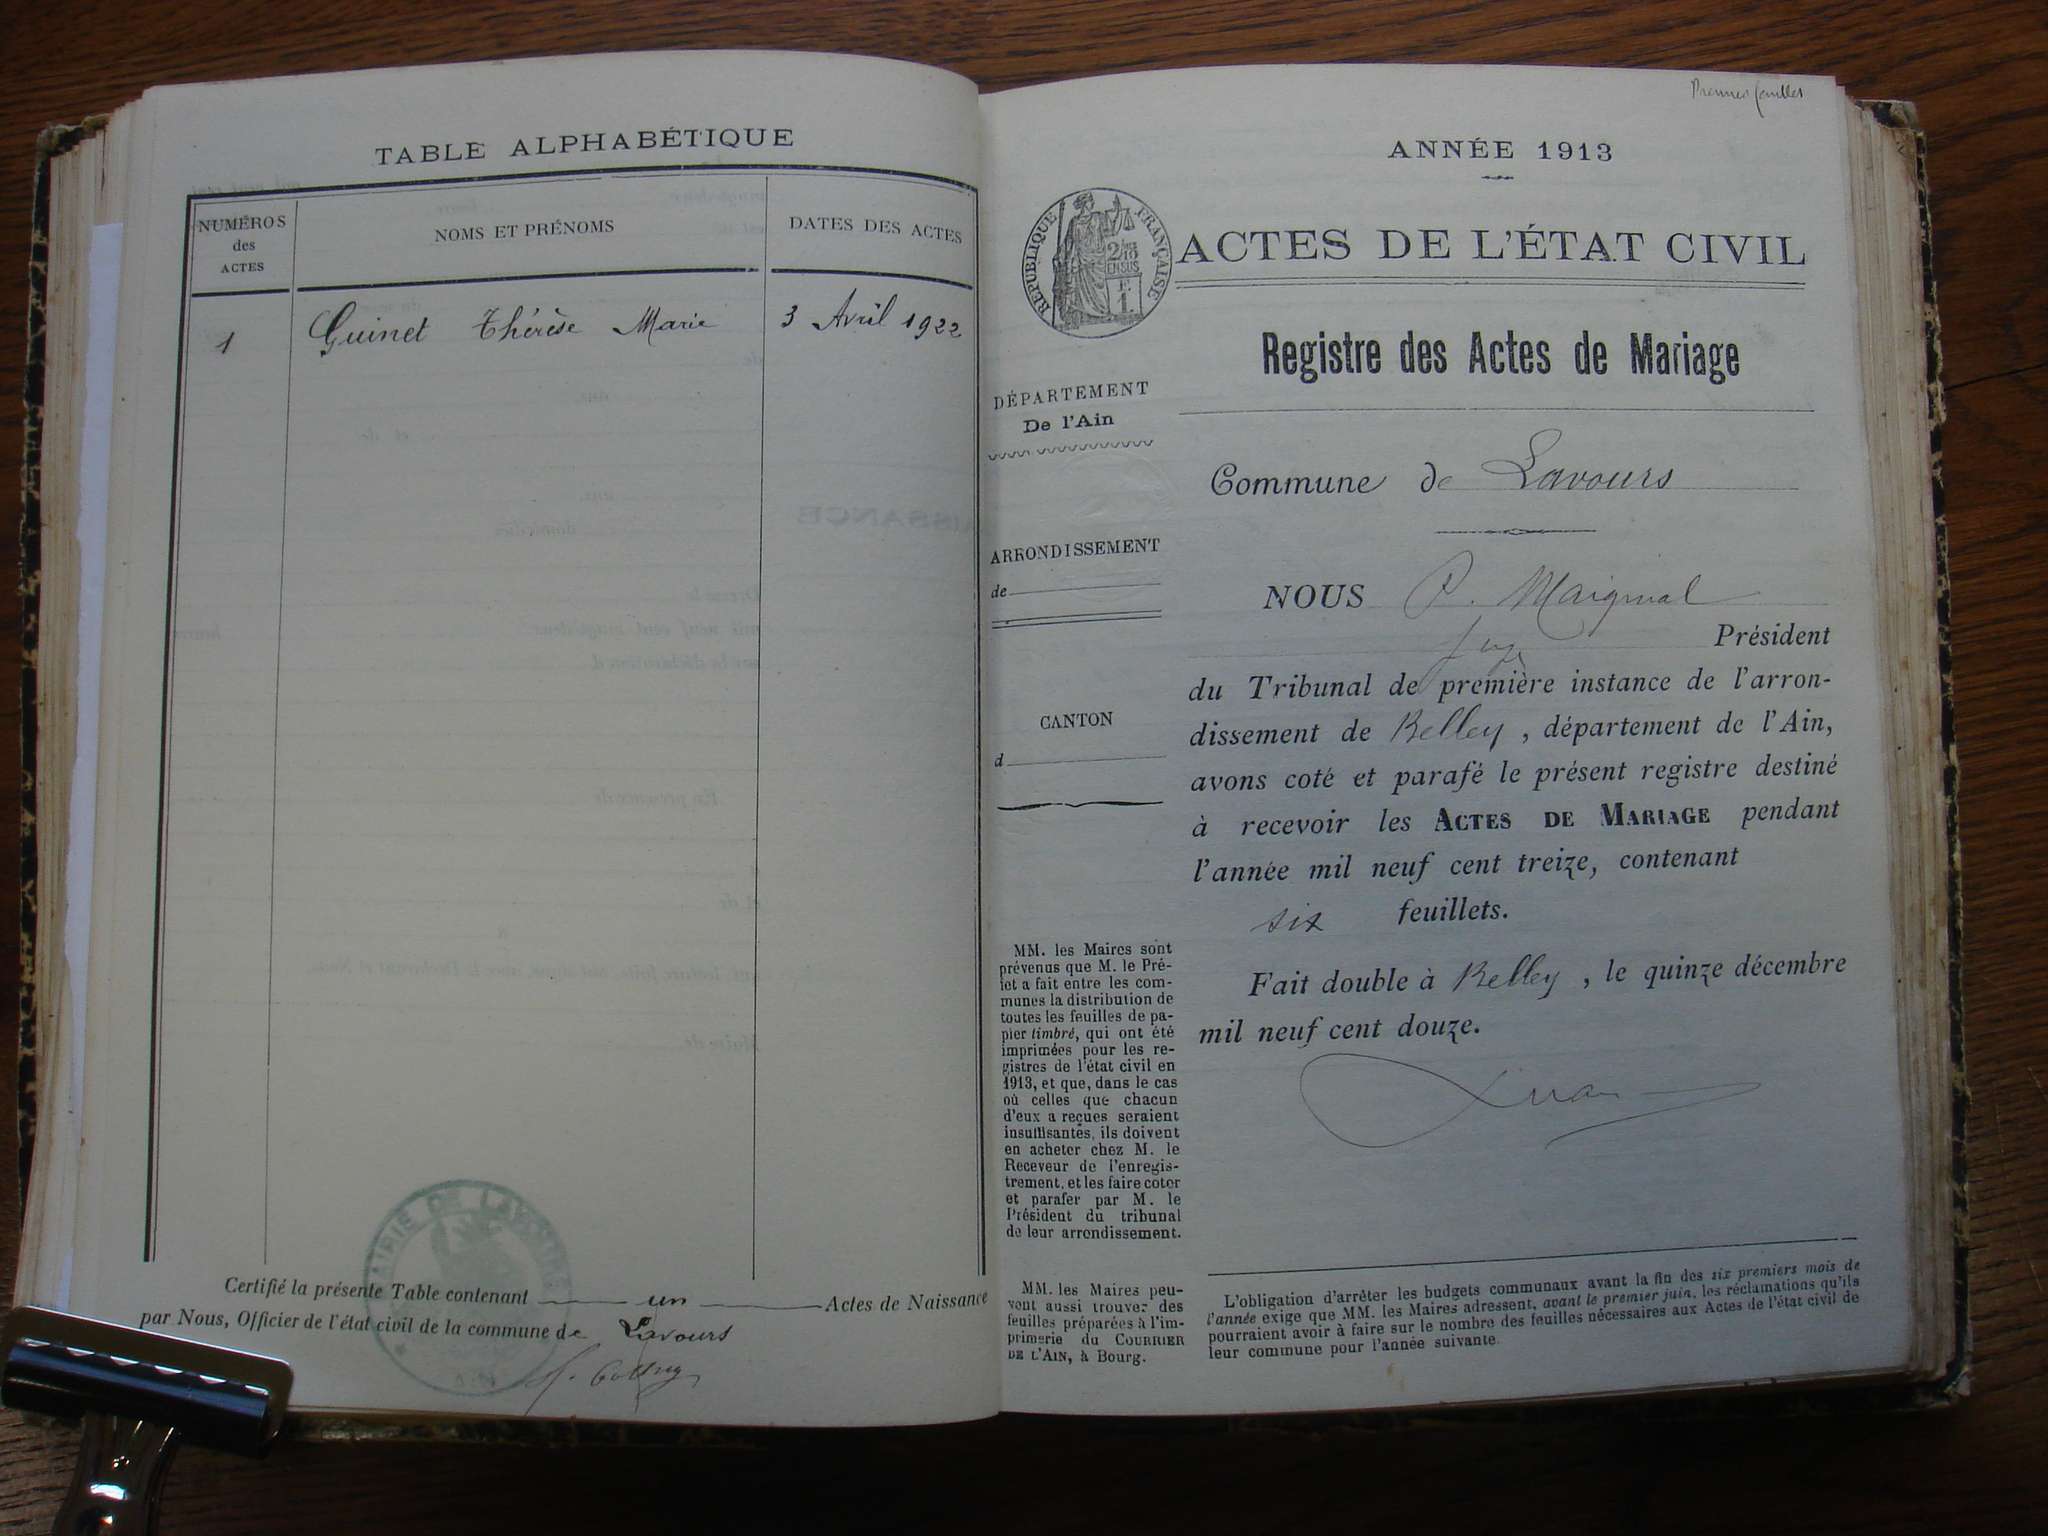 TABLE ALPHABÉTIQUE
NUMÉROS
des
ACTES
NOMS ET PRÉNOMS
DATES DES ACTES
1
Guinet Thérèse Marie
3 Avril 1922
MAIRIE DE LAVOURS
Certifié la présente Table contenant un Actes de Naissance
par Nous, Officier de l'état civil de la commune de Lavours
Premier feuillet
ANNÉE 1913
RÉPUBLIQUE FRANÇAISE
ACTES DE L'ÉTAT CIVIL
Registre des Actes de Mariage
DÉPARTEMENT
De l'Ain
Commune de Lavours
ARRONDISSEMENT
de
NOUS P. Maignal
Juge Président
du Tribunal de première instance de l'arron-
dissement de Belley, département de l'Ain,
avons coté et parafé le présent registre destiné
à recevoir les ACTES DE MARIAGE pendant
l'année mil neuf cent treize, contenant
six feuillets.
CANTON
d
Fait double à Belley, le quinze décembre
mil neuf cent douze.
MM. les Maires sont
prévenus que M. le Pré-
fet a fait entre les com-
munes la distribution de
toutes les feuilles de pa-
pier timbré, qui ont été
imprimées pour les re-
gistres de l'état civil en
1913, et que, dans le cas
où celles que chacun
d'eux a reçues seraient
insuffisantes, ils doivent
en acheter chez M. le
Receveur de l'enregis-
trement, et les faire coter
et parafer par M. le
Président du tribunal
de leur arrondissement.
MM. les Maires peu-
vent aussi trouver des
feuilles préparées à l'im-
primerie du COURRIER
DE L'AIN, à Bourg.
L'obligation d'arrêter les budgets communaux avant la fin des six premiers mois de
l'année exige que MM. les Maires adressent, avant le premier juin, les réclamations qu'ils
pourraient avoir à faire sur le nombre des feuilles nécessaires aux Actes de l'état civil de
leur commune pour l'année suivante.